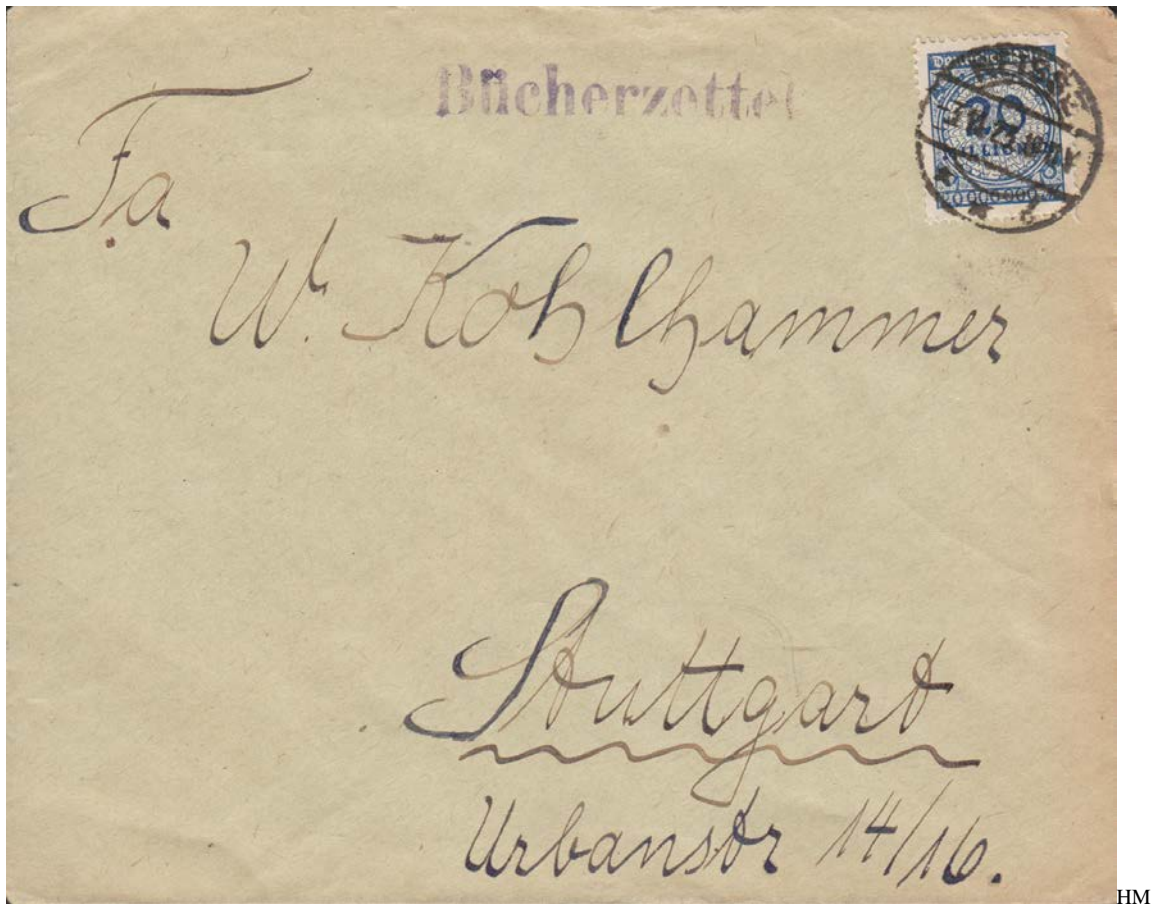 Bücherzettel
Deutsches Reich
20
MILLIONEN
20000000
NEISSE
Fa
W. Kohlhammer
Stuttgart
Urbanstr 14/16.
HM